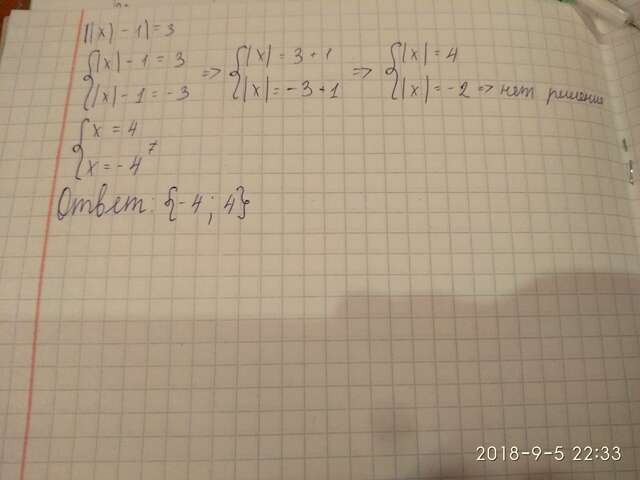 ||x|-1|=3
{|x|-1=3 => {|x|=3+1 => {|x|=4
{|x|-1=-3 {|x|=-3+1 {|x|=-2 => нет решения
{x=4
{x=-4
Ответ: {-4; 4}
2018-9-5 22:33